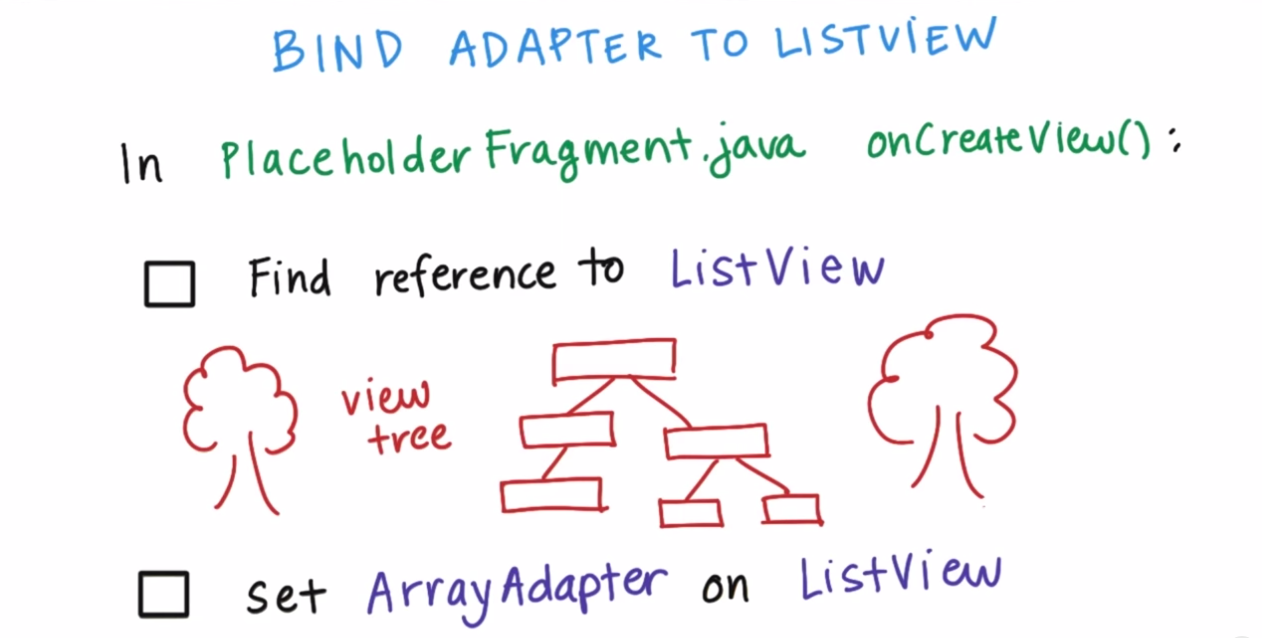 BIND ADAPTER TO LISTVIEW
In PlaceholderFragment.java onCreateView():
Find reference to ListView
view
tree
set ArrayAdapter on ListView